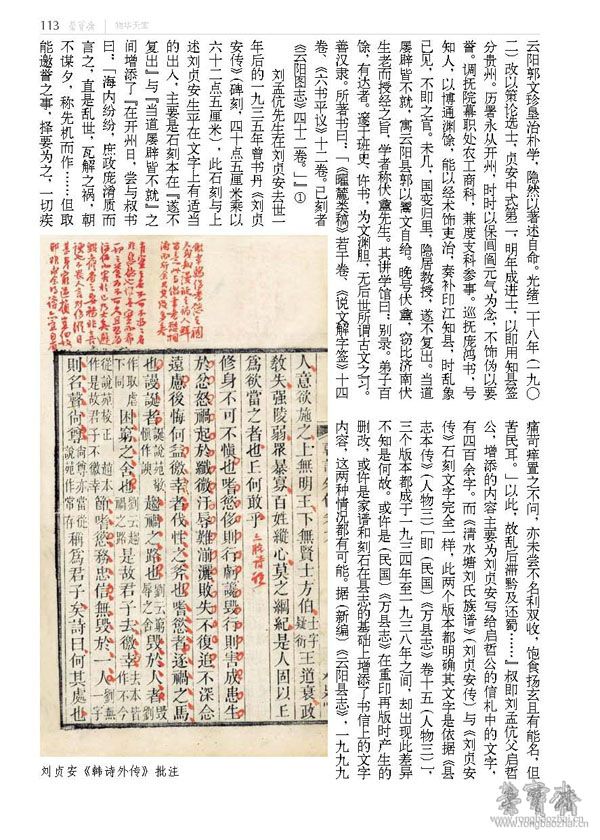 113 荣宝斋 物华天宝
云阳郭文珍皇治朴学，隐然以著述自命。光绪二十八年（一九〇
二）改以策论选士，贞安中式第一，明年成进士，以即用知县签
分贵州。历署永从开州，时时以保闾阎元气为念，不饰伪以要
誉。调抚院幕职处农工商科，兼度支科参事。巡抚庞鸿书，号
知人，以博通渊馀，能以经术饰吏治，奏补印江知县，时乱象
已见，不即之官。未几，国变归里，隐居教授，遂不复出。当道
屡辟皆不就，寓云阳县郭以鬻文自给。晚号伏盦，窃比济南伏
生老而授经之旨，学者称伏盦先生。其讲学馆曰：别录。弟子百
馀，有达者。邃于班史、许书，为文渊胆，无后世所谓古文之习。
善汉隶。所著书曰：「《曜麓类稿》若干卷、《说文解字签》十四
卷、《六书平议》十二卷。已刻者
《云阳图志》四十二卷。」①
刘孟伉先生在刘贞安去世一
年后的一九三五年曾书丹《刘贞
安传》（碑刻，四十点五厘米乘以
六十二点五厘米），此石刻与上
述刘贞安生平在文字上有适当
的出入，主要是石刻本在『遂不
复出』与『当道屡辟皆不就』之
间增添了『在开州日，尝与叔书
曰：「海内纷纷，庶政庞淆质而
言之，直是乱世，瓦解之祸，朝
不谋夕，称先机而作……但取
能邀誉之事，择要为之，一切疾
痛苛痒置之不问，亦未尝不名利双收，饱食扬玄且有能名，但
苦民耳。」以此，故乱后滞黔及还蜀……』叔即刘孟伉父启哲
公，增添的内容主要为刘贞安写给启哲公的信札中的文字，
有四百余字。而《清水塘刘氏族谱》《刘贞安传》与《刘贞安
传》石刻文字完全一样，此两个版本都明确其文字是依据《县
志本传》（人物三），即（民国）《万县志》卷十五（人物三），
三个版本都成于一九三四年至一九三八年之间，却出现此差异
不知是何故。或许是（民国）《万县志》在重印再版时产生的
删改，或许是家谱和刻石在县志的基础上增添了书信上的文字
内容，这两种情况都有可能。据（新编）《云阳县志》，一九九九
人意欲施之上無明王下無賢士方伯王道衰政
教失强陵弱衆暴寡百姓縱心莫之綱紀是人固以上
爲欲當之者也王何敢乎
修身不可不愼也嗜慾侈則行虧讒毁行則害成患生
於忿怒禍起於纖微汙辱難湔灑敗失不復追不深念
遠慮後悔何益徼幸者伐性之斧也嗜慾者逐禍之馬
也謾誕者趨禍之路也毁於人者
困窮之舍也是故君子去徼幸
節嗜慾務忠信無毁於一人
則名聲尚尊稱爲君子矣詩曰何其處也
刘贞安《韩诗外传》批注
荣宝斋
www.rongbaozhai.cn